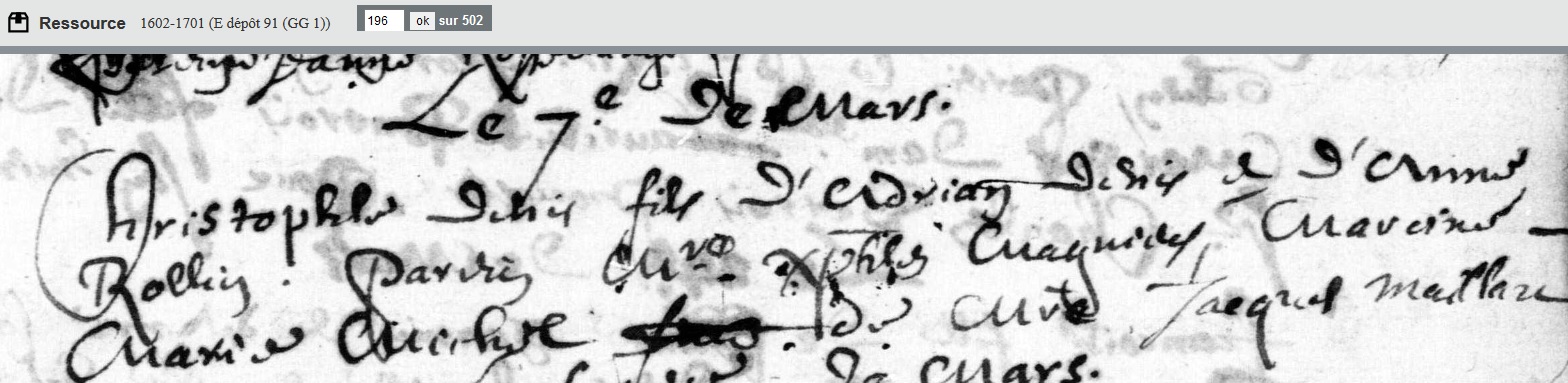 Ressource 1602-1701 (E dépôt 91 (GG 1)) 196 ok sur 502
Le 7.e De Mars.
Christophle Denis fils D'Adrian Denis & D'Anne
Rollin. Parrin Mre Xphle Mareine
Marie Michel de Mre Jacques Maillar
De Mars.